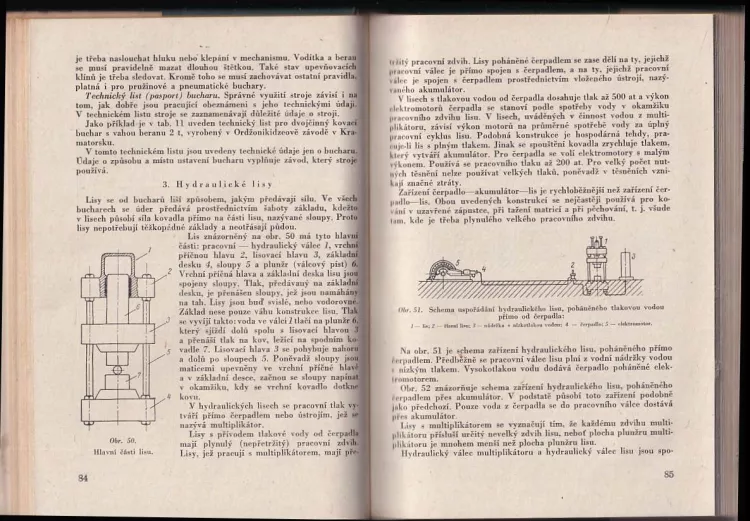 je třeba naslouchat hluku nebo klepání v mechanismu. Vodítka a beran
se musí pravidelně mazat dlouhou štětkou. Také stav upevňovacích
klínů je třeba sledovat. Kromě toho se musí zachovávat ostatní pravidla,
platná i pro pružinové a pneumatické buchary.
Technický list (pasport) bucharu. Správné využití stroje závisí i na
tom, jak dobře jsou pracující obeznámeni s jeho technickými údaji.
V technickém listu stroje se zaznamenávají důležité údaje o stroji.
Jako příklad je v tab. 11 uveden technický list pro dvojčinný kovací
buchar s vahou beranu 2 t, vyrobený v Ordžonikidzeově závodě v Kra-
matorsku.
V tomto technickém listu jsou uvedeny technické údaje jen o bucharu.
Údaje o způsobu a místu ustavení bucharu vyplňuje závod, který stroje
používá.
3. Hydraulické lisy
Lisy se od bucharů liší způsobem, jakým předávají sílu. Ve všech
bucharech se úder předává prostřednictvím šaboty základu, kdežto
v lisech působí síla kovadla přímo na části lisu, nazývané sloupy. Proto
lisy nepotřebují těžkopádné základy a neotřásají půdou.
Lis znázorněný na obr. 50 má tyto hlavní
části: pracovní — hydraulický válec 1, vrchní
příčnou hlavu 2, lisovací hlavu 3, základní
desku 4, sloupy 5 a plunžr (válcový píst) 6.
Vrchní příčná hlava a základní deska lisu jsou
spojeny sloupy. Tlak, předávaný na základní
desku, je přenášen sloupy, jež jsou namáhány
na tah. Lisy jsou buď svislé, nebo vodorovné.
Základ nese pouze váhu konstrukce lisu. Tlak
se vyvíjí takto: voda ve válci 1 tlačí na plunžr 6,
který sjíždí dolů spolu s lisovací hlavou 3
a přenáší tlak na kov, ležící na spodním ko-
vadle 7. Lisovací hlava 3 se pohybuje nahoru
a dolů po sloupech 5. Poněvadž sloupy jsou
maticemi upevněny ve vrchní příčné hlavě
a v základní desce, začnou se sloupy napínat
v okamžiku, kdy se vrchní kovadlo dotkne
kovu.
V hydraulických lisech se pracovní tlak vy-
tváří přímo čerpadlem nebo ústrojím, jež se
nazývá multiplikátor.
Lisy s přívodem tlakové vody od čerpadla
mají plynulý (nepřetržitý) pracovní zdvih.
Lisy, jež pracují s multiplikátorem, mají pře-
1
2
6
3
5
7
4
Obr. 50.
Hlavní části lisu.
84
tržitý pracovní zdvih. Lisy poháněné čerpadlem se zase dělí na ty, jejichž
pracovní válec je přímo spojen s čerpadlem, a na ty, jejichž pracovní
válec je spojen s čerpadlem prostřednictvím vloženého ústrojí, nazý-
vaného akumulátor.
V lisech s tlakovou vodou od čerpadla dosahuje tlak až 500 at a výkon
elektromotorů čerpadla se stanoví podle spotřeby vody v okamžiku
pracovního zdvihu lisu. V lisech, uváděných v činnost vodou z multi-
plikátoru, závisí výkon motorů na průměrné spotřebě vody za úplný
pracovní cyklus lisu. Podobná konstrukce je hospodárná tehdy, pra-
cuje-li lis s plným tlakem. Jinak se spouštění kovadla zrychluje tlakem,
který vytváří akumulátor. Pro čerpadla se volí elektromotory s malým
výkonem. Používá se pracovního tlaku až 200 at. Pro velký počet nut-
ných těsnění nelze používat velkých tlaků, poněvadž v těsněních vzni-
kají značné ztráty.
Zařízení čerpadlo—akumulátor—lis je rychloběžnější než zařízení čer-
padlo—lis. Obou uvedených konstrukcí se nejčastěji používá pro ko-
vání v uzavřené zápustce, při tažení matricí a při pěchování, t. j. všude
tam, kde je třeba plynulého velkého pracovního zdvihu.
5
4
2
1
3
Obr. 51. Schema uspořádání hydraulického lisu, poháněného tlakovou vodou
přímo od čerpadla:
1 — lis; 2 — řízení lisu; 3 — nádržka s nízkotlakou vodou; 4 — čerpadlo; 5 — elektromotor.
Na obr. 51 je schema zařízení hydraulického lisu, poháněného přímo
čerpadlem. Předběžně se pracovní válec lisu plní z vodní nádržky vodou
s nízkým tlakem. Vysokotlakou vodu dodává čerpadlo poháněné elek-
tromotorem.
Obr. 52 znázorňuje schema zařízení hydraulického lisu, poháněného
čerpadlem přes akumulátor. V podstatě působí toto zařízení podobně
jako předchozí. Pouze voda z čerpadla se do pracovního válce dostává
přes akumulátor.
Lisy s multiplikátorem se vyznačují tím, že každému zdvihu multi-
plikátoru přísluší určitý nevelký zdvih lisu, neboť plocha plunžru multi-
plikátoru je mnohem menší než plocha plunžru lisu.
Hydraulický válec multiplikátoru a hydraulický válec lisu jsou spo-
85